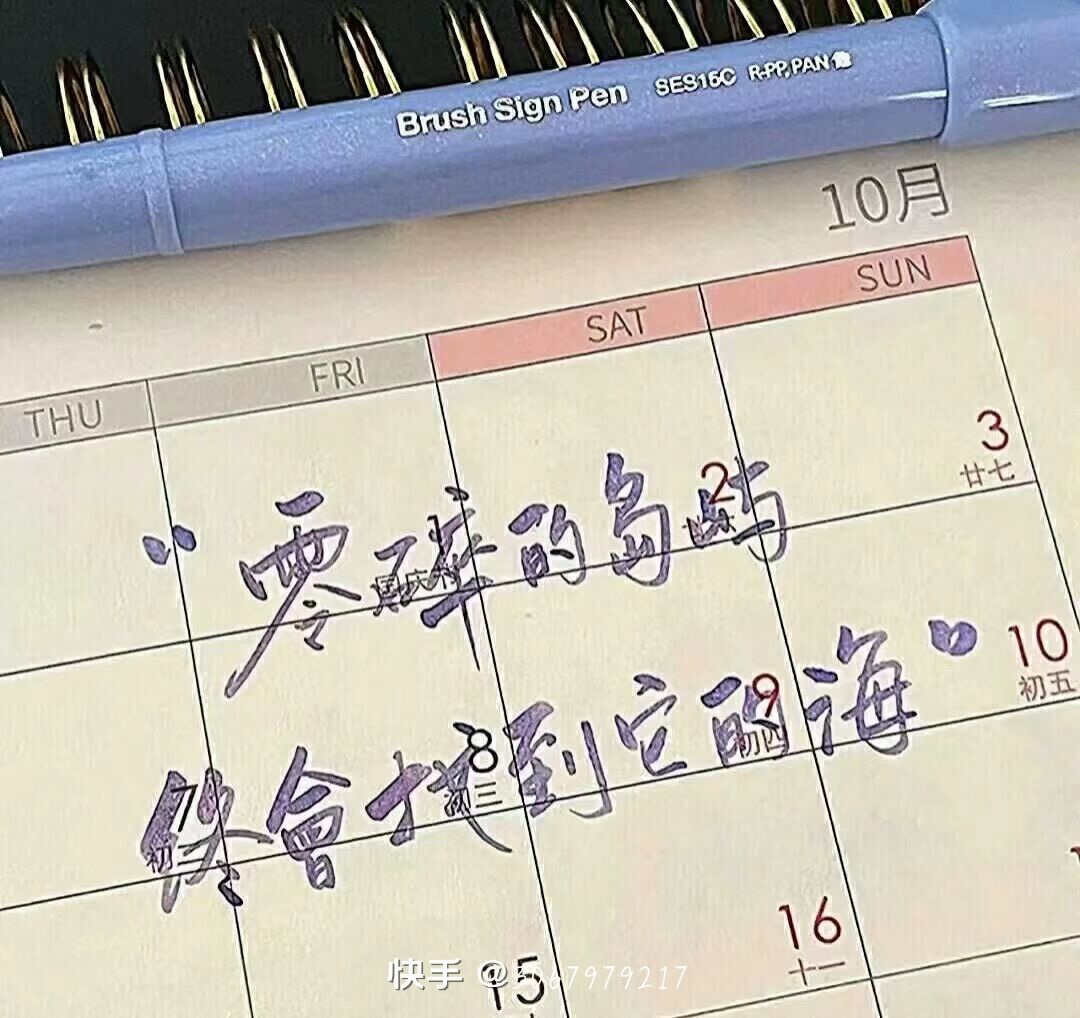 Brush Sign Pen SES15C R-PP, PAN
10月
THU FRI SAT SUN
1 2 3
廿七
“零碎的岛屿
7 8 9 10
初二 初三 初四 初五
終會找到它的海”
15 16
十一
快手 @3067979217